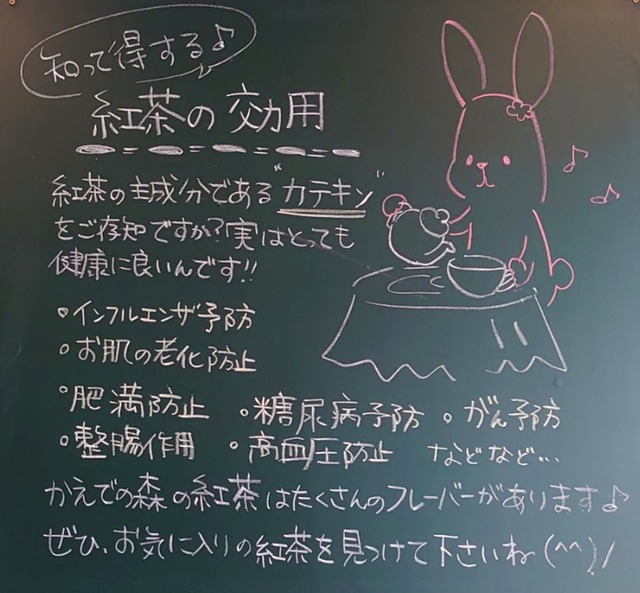 知って得する♪
紅茶の効用
紅茶の主成分である"カテキン"
をご存知ですか?実はとっても
健康に良いんです!!
・インフルエンザ予防
・お肌の老化防止
・肥満防止 ・糖尿病予防 ・がん予防
・整腸作用 ・高血圧防止 などなど…
かえでの森の紅茶はたくさんのフレーバーがあります♪
ぜひ、お気に入りの紅茶を見つけて下さいね(^^)/